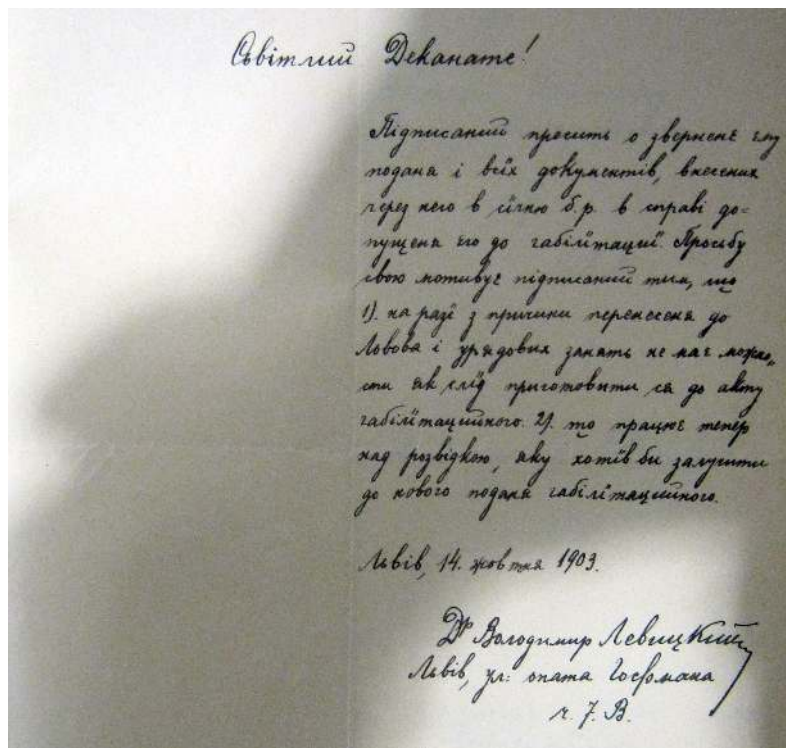 Сьвітлий Деканате!
Підписаний просить о зверненє єму
поданя і всїх документів, внесених
через него в сїчню б.р. в справі до=
пущеня єго до габілїтациї. Просьбу
свою мотивує підписаний тим, що
1). на разї з причини перенесеня до
Львова і урядових занять не має можно„
сти як слїд приготовити ся до акту
габілїтацийного. 2). що працює тепер
над розвідкою, яку хотїв би залучити
до нового поданя габілїтацийного.
Львів, 14. жовтня 1903.
Др Володимир Левицкий
Львів, ул: опата Гофмана
ч. 7. В.